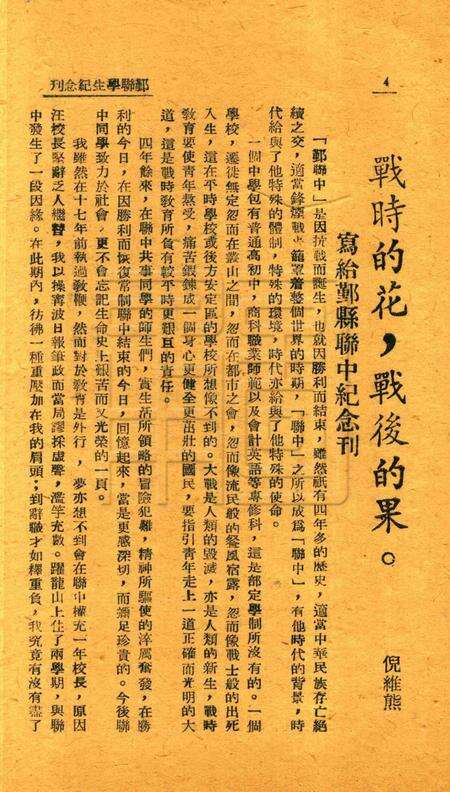 鄞聯學生紀念刊
4
戰時的花，戰後的果。
寫給鄞縣聯中紀念刊
倪維熊
「鄞聯中」是因抗戰而誕生，也就因勝利而結束，雖然祇有四年多的歷史，適當中華民族存亡絕
續之交，適當鋒鏑戰火籠罩着整個世界的時期，「聯中」之所以成為「聯中」，有他時代的背景，時
代給與了他特殊的體制，特殊的環境，時代亦給與了他特殊的使命。
一個中學包有普通高初中，商科職業師範以及會計英語等專修科，這是部定學制所沒有的。一個
學校，遷徙無定忽而在叢山之間，忽而在都市之會，忽而像流民般的餐風宿露，忽而像戰士般的出死
入生，這在平時學校或後方安定區的學校所想像不到的。大戰是人類的毀滅，亦是人類的新生，戰時
教育要使青年熬受，痛苦鍛鍊成一個身心更健全更茁壯的國民，要指引青年走上一道正確而光明的大
道，這是戰時教育所負有較平時更艱巨的責任。
四年餘來，在聯中共事同學的師生們，實生活所領略的冒險犯難，精神所驅使的淬厲奮發，在勝
利的今日，在因勝利而恢復常制聯中結束的今日，回憶起來，當是更感深切，而彌足珍貴的。今後聯
中同學致力於社會，更不會忘記生命史上艱苦而又光榮的一頁。
我雖然在十七年前執過教鞭，然而對於教育是外行，夢亦想不到會在聯中權充一年校長，原因
汪校長堅辭乏人繼替，我以操寗波日報筆政而當局謬採虛聲，濫竽充數。躍龍山上住了兩學期，與聯
中發生了一段因緣。在此期內，彷彿一種重壓加在我的肩頭，到辭職才如釋重負，我究竟有沒有盡了